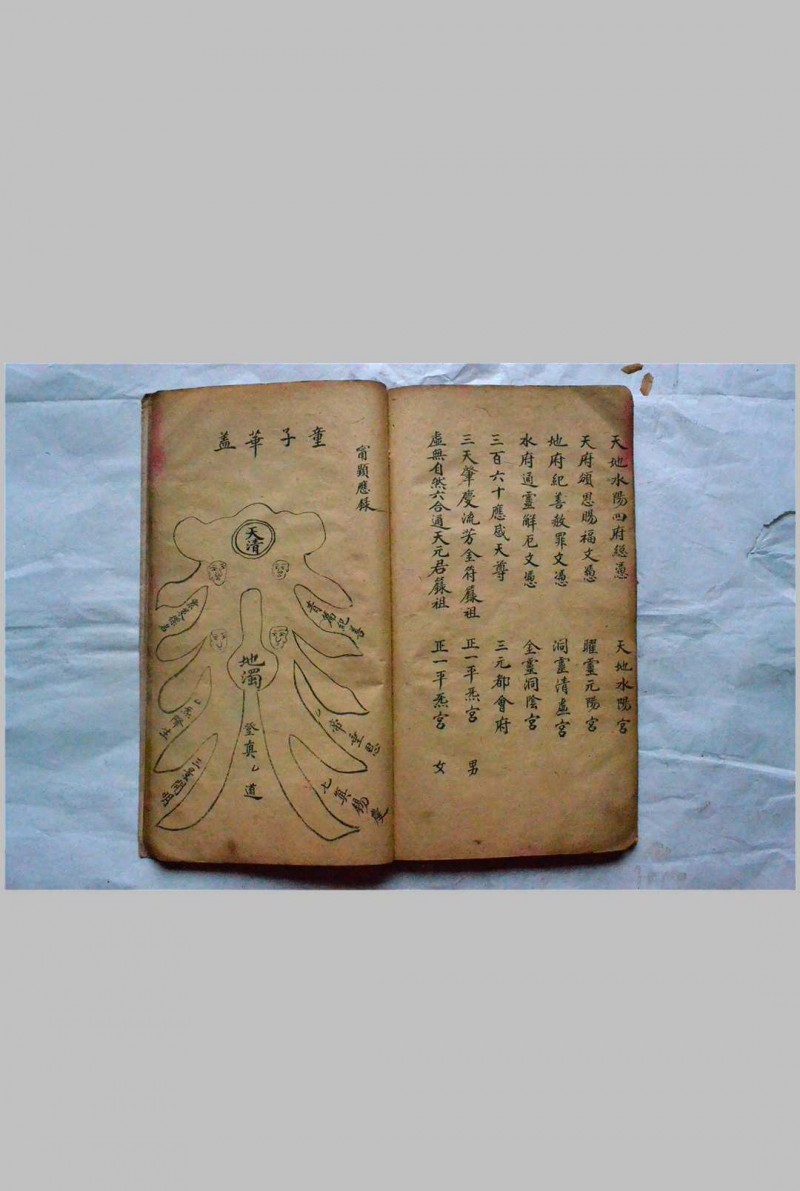 天地水陽四府總憑 天地水陽宮
天府頒恩賜福文憑 曜靈元陽宮
地府紀善赦罪文憑 洞靈清虛宮
水府通靈解厄文憑 金靈洞陰宮
三百六十應感天尊 三元都會府
三天肇慶流芳金符籙祖 正一平炁宮 男
虛無自然六合通天元君籙祖 正一平炁宮 女
顯應錄
童子華蓋
天清
地濁
登真 道
七真